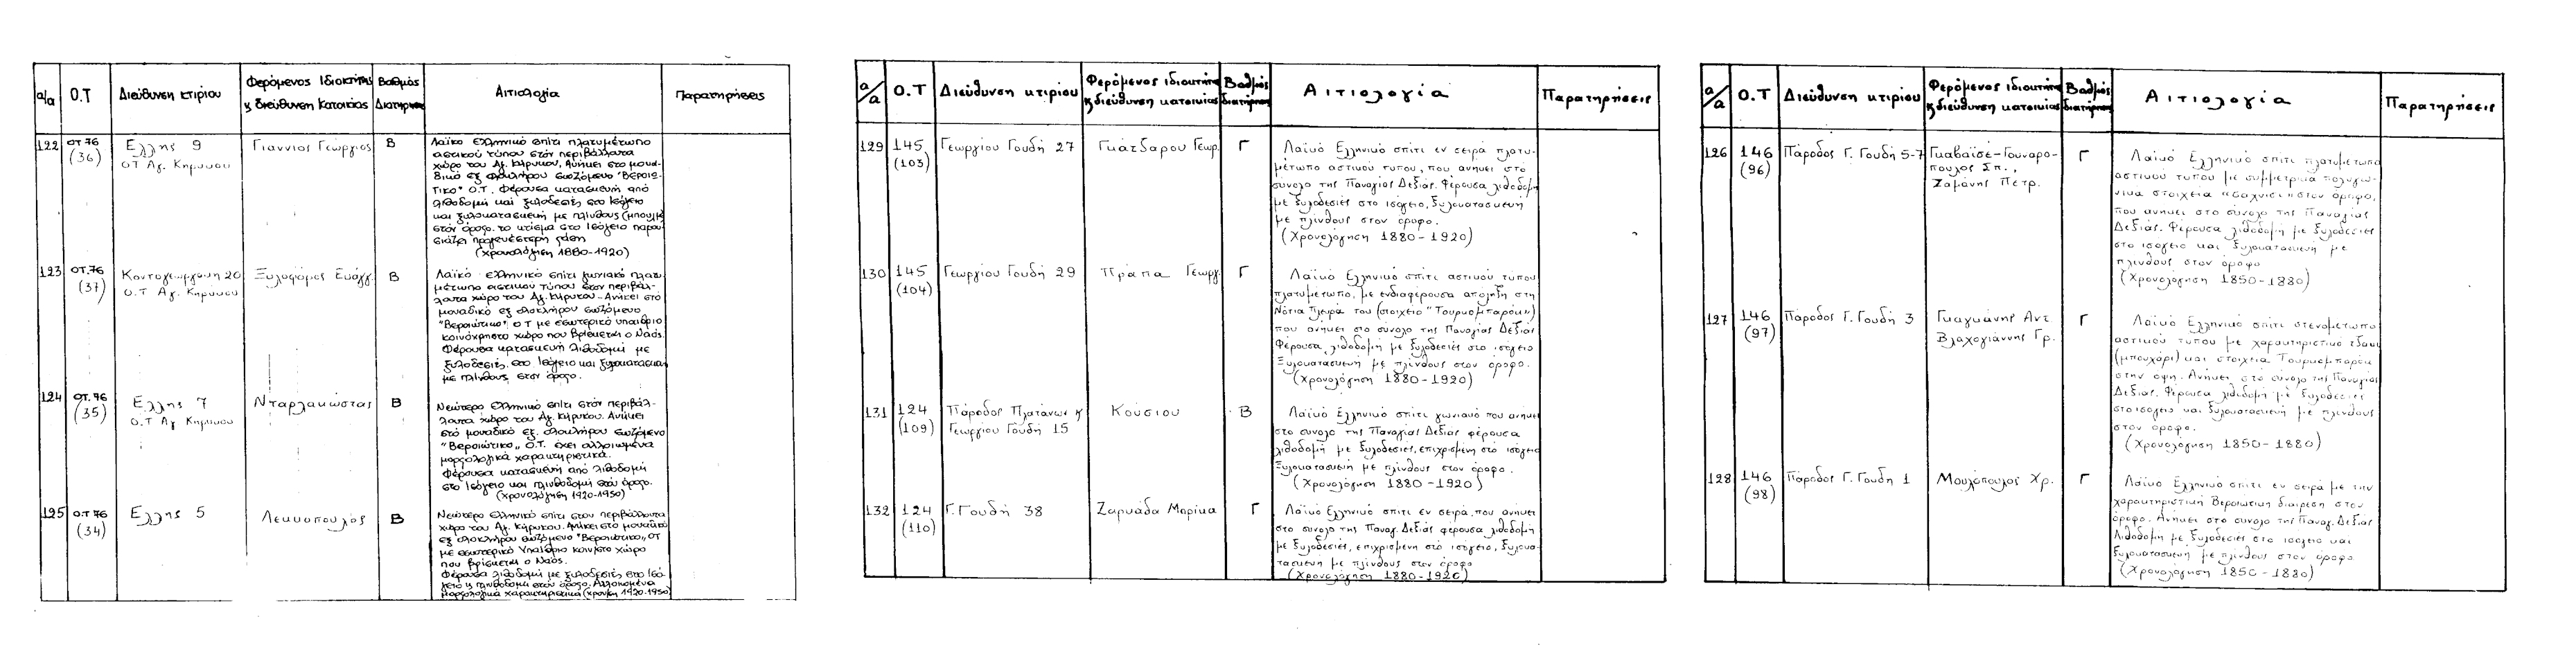 α/α Ο.Τ Διεύθυνση κτιρίου Φερόμενος Ιδιοκτήτης Βαθμός Αιτιολογία Παρατηρήσεις
κ διεύθυνση κατοικίας Διατήρησης
122 ΟΤ 76 Έλλης 9 Γιαννιος Γεώργιος Β Λαϊκό Ελληνικό σπίτι πλατυμέτωπο
(36) Ο.Τ Αγ. Κηρύκου αστικού τύπου στόν περιβάλλοντα
χώρο του Αγ. Κήρυκου. Ανήκει στο μονα-
δικό εξ ολοκλήρου σωζόμενο "Βεροιώ-
τικο" Ο.Τ. Φέρουσα κατασκευή από
λιθοδομή και ξυλοδεσιές στο Ισόγειο
και ξυλοκατασκευή με πλίνθους (μπουλμέ)
στόν όροφο. το κτίσμα στο Ισόγειο παρου
σιάζει προγενέστερη φάση
(χρονολόγηση 1880-1920)
123 ΟΤ.76 Κοντογεωργάκη 20 Ξυλοφόρος Ευάγγ. Β Λαϊκό ελληνικό σπίτι γωνιακό πλατυ-
(37) Ο.Τ Αγ. Κηρύκου μέτωπο αστικού τύπου στον περιβάλ-
λοντα χώρο του Αγ. Κήρυκου - Ανήκει στό
μοναδικό εξ ολοκλήρου σωζόμενο
"Βεροιώτικο" Ο.Τ με εσωτερικό υπαίθριο
κοινόχρηστο χώρο που βρίσκεται ο Ναός.
Φέρουσα κατασκευή λιθοδομή με
ξυλοδεσιές στο Ισόγειο και ξυλοκατασκευή
με πλίνθους στον όροφο.
124 ΟΤ.76 Έλλης 7 Νταρλακώστας Β Νεώτερο Ελληνικό σπίτι στόν περιβάλ-
(35) Ο.Τ Αγ Κηρύκου λοντα χώρο του Αγ. Κήρυκου. Ανήκει
στό μοναδικό εξ. ολοκλήρου σωζόμενο
"Βεροιώτικο,, Ο.Τ. έχει αλλοιωμένα
μορφολογικά χαρακτηριστικά.
Φέρουσα κατασκευή από λιθοδομή
στο Ισόγειο και πλινθοδομή στόν όροφο.
(χρονολόγηση 1920-1950)
125 Ο.Τ 76 Έλλης 5 Λεκκοπουλος Β Νεώτερο Ελληνικό σπίτι στον περιβάλλοντα
(34) χώρο του Αγ. Κήρυκου. Ανήκει στο μοναδικό
εξ ολοκλήρου σωζόμενο "Βεροιώτικο,, ΟΤ
με εσωτερικό Υπαίθριο κοιν/στο χώρο
που βρίσκεται ο Ναός.
Φέρουσα λιθοδομή με ξυλοδεσιές στο Ισό-
γειο κ πλινθοδομή στόν όροφο. Αλλοιωμένα
μορφολογικά χαρακτηριστικά (χρον/ση 1920-1950
α/α Ο.Τ Διεύθυνση κτιρίου Φερόμενος ιδιοκτήτης Βαθμός Αιτιολογία Παρατηρήσεις
κ διεύθυνση κατοικίας διατήρησης
129 145 Γεωργίου Γουδή 27 Γκατζαρου Γεωρ. Γ Λαϊκό Ελληνικό σπίτι εν σειρά πλατυ-
(103) μέτωπο αστικού τύπου, που ανήκει στο
σύνολο της Παναγίας Δεξιάς. Φέρουσα λιθοδομή
με ξυλοδεσιές στο ισόγειο, ξυλοκατασκευή
με πλίνθους στον όροφο.
(Χρονολόγηση 1880-1920)
130 145 Γεωργίου Γουδή 29 Πράπα Γεώργ. Γ Λαϊκό Ελληνικό σπίτι αστικού τύπου
(104) πλατυμέτωπο, με ενδιαφέρουσα απόληξη στη
Νότια πλευρά του (στοιχείο "Τουρκομπαρόκ")
που ανήκει στο σύνολο της Παναγίας Δεξιάς
Φέρουσα λιθοδομή με ξυλοδεσιές στο ισόγειο
Ξυλοκατασκευή με πλίνθους στον όροφο.
(Χρονολόγηση 1880-1920)
131 124 Πάροδος Πλατάνων κ Κούσιου Β Λαϊκό Ελληνικό σπίτι γωνιακό που ανήκει
(109) Γεωργίου Γουδή 15 στο σύνολο της Παναγίας Δεξιάς φέρουσα
λιθοδομή με ξυλοδεσιές, επιχρισμένη στο ισόγειο
Ξυλοκατασκευή με πλίνθους στον όροφο.
(Χρονολόγηση 1880-1920)
132 124 Γ. Γουδή 38 Ζαρκάδα Μαρίκα Γ Λαϊκό Ελληνικό σπίτι εν σειρά, που ανήκει
(110) στο σύνολο της Παναγ. Δεξιάς φέρουσα λιθοδομή
με ξυλοδεσιές, επιχρισμένη στο ισόγειο, ξυλοκα-
τασκευή με πλίνθους στον όροφο
(Χρονολόγηση 1880-1920)
α/α Ο.Τ Διεύθυνση κτιρίου Φερόμενος ιδιοκτήτης Βαθμός Αιτιολογία Παρατηρήσεις
κ διεύθυνση κατοικίας διατήρησης
126 146 Πάροδος Γ. Γουδή 5-7 Γκαβαϊσέ-Γουναρο- Γ Λαϊκό Ελληνικό σπίτι πλατυμέτωπο
(96) πουλος Σπ., αστικού τύπου με συμμετρικά πολυγω-
Ζαμάνης Πετρ. νικα στοιχεία «σαχνισι» στον όροφο,
που ανήκει στο σύνολο της Παναγίας
Δεξιάς. Φέρουσα λιθοδομή με ξυλοδεσιές
στο ισόγειο και ξυλοκατασκευή με
πλίνθους στον όροφο
(Χρονολόγηση 1850-1880)
127 146 Πάροδος Γ. Γουδή 3 Γκαγκάνης Αντ. Γ Λαϊκό Ελληνικό σπίτι στενομέτωπο
(97) Βλαχογιάννης Γρ. αστικού τύπου με χαρακτηριστικό τζάκι
(μπουχάρι) και στοιχεία Τουρκομπαρόκ
στην οψη. Ανήκει στο σύνολο της Παναγίας
Δεξιάς. Φέρουσα λιθοδομή με ξυλοδεσιές
στο ισόγειο και ξυλοκατασκευή με πλίνθους
στον όροφο.
(Χρονολόγηση 1850-1880)
128 146 Πάροδος Γ. Γουδή 1 Μουλόπουλος Χρ. Γ Λαϊκό Ελληνικό σπίτι εν σειρά με την
(98) χαρακτηριστική Βεροιώτικη διαίρεση στον
όροφο. Ανήκει στο σύνολο της Παναγ. Δεξιάς
Λιθοδομή με ξυλοδεσιές στο ισόγειο και
ξυλοκατασκευή με πλίνθους στον όροφο
(Χρονολόγηση 1850-1880)